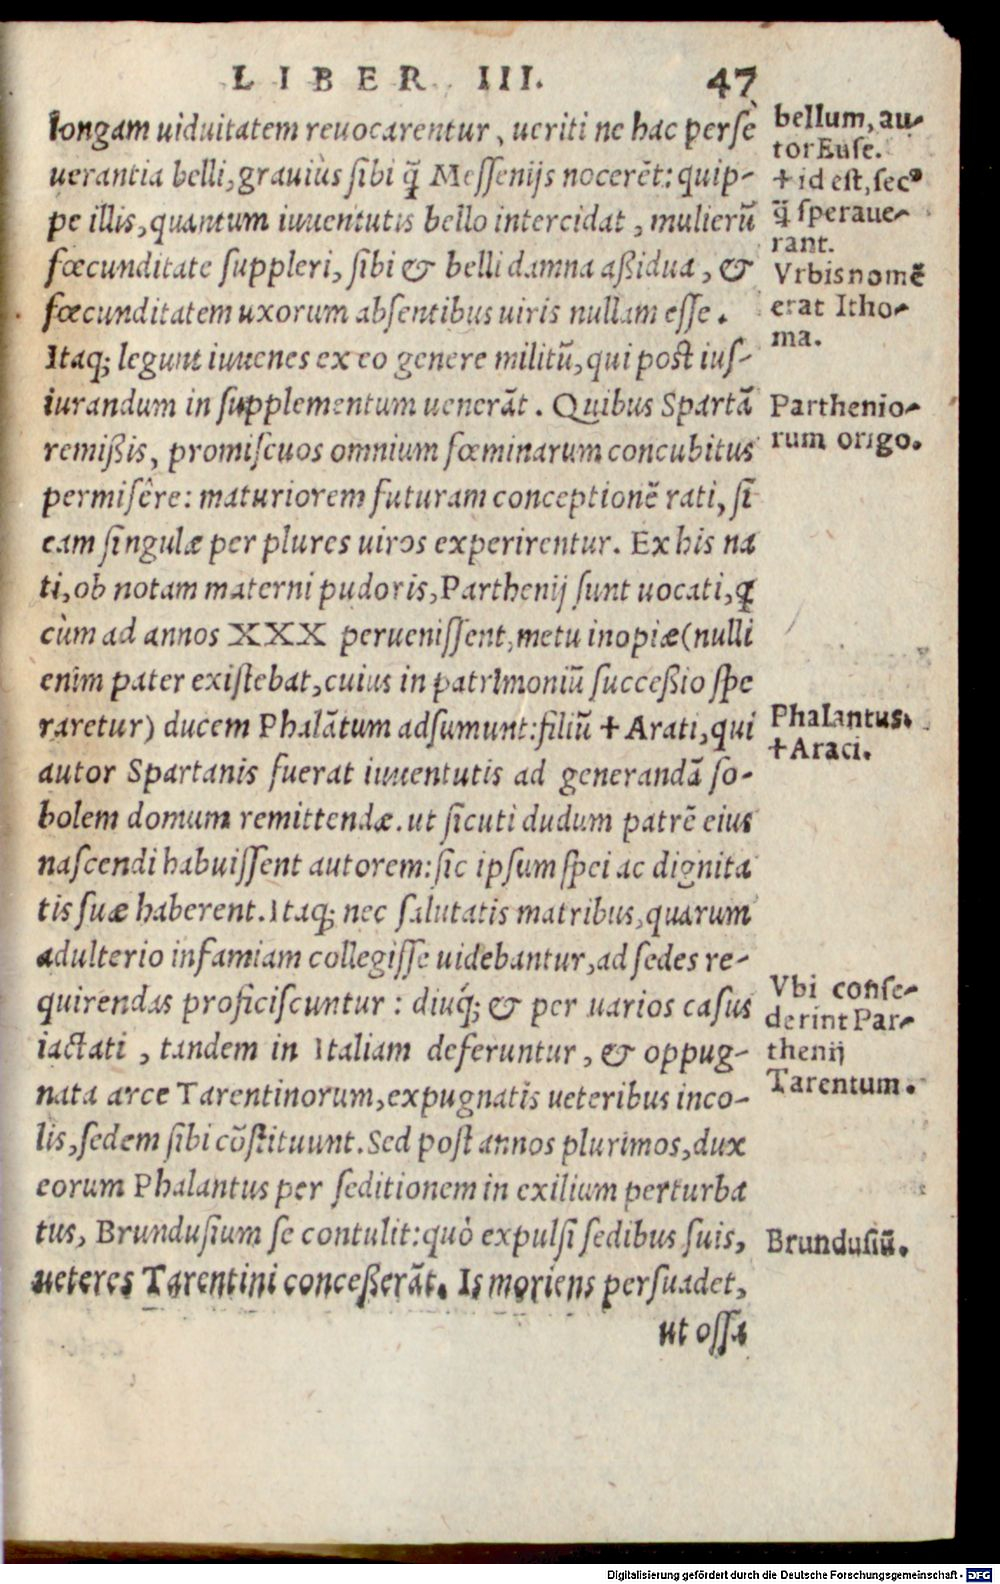 LIBER III. 47
longam uiduitatem reuocarentur, ueriti ne hac persè
uerantia belli, grauiùs sibi q̃ Messenijs nocerẽt: quip-
pe illis, quantum iuuentutis bello intercidat, mulierũ
fœcunditate suppleri, sibi & belli damna aßidua, &
fœcunditatem uxorum absentibus uiris nullam esse.
Itaq; legunt iuuenes ex eo genere militũ, qui post ius-
iurandum in supplementum uenerãt. Quibus Spartã
remißis, promiscuos omnium fœminarum concubitus
permisêre: maturiorem futuram conceptionẽ rati, si
eam singulæ per plures uiros experirentur. Ex his na
ti, ob notam materni pudoris, Parthenij sunt uocati, q
cùm ad annos XXX peruenissent, metu inopiæ (nulli
enim pater existebat, cuius in patrimoniũ succeßio spe
raretur) ducem Phalãtum adsumunt: filiũ + Arati, qui
autor Spartanis fuerat iuuentutis ad generandã so-
bolem domum remittendæ. ut sicuti dudum patrẽ eius
nascendi habuissent autorem: sic ipsum spei ac dignita
tis suæ haberent. Itaq; nec salutatis matribus, quarum
adulterio infamiam collegisse uidebantur, ad sedes re-
quirendas proficiscuntur: diuq́; & per uarios casus
iactati, tandem in Italiam deferuntur, & oppug-
nata arce Tarentinorum, expugnatis ueteribus inco-
lis, sedem sibi cõstituunt. Sed post annos plurimos, dux
eorum Phalantus per seditionem in exilium perturba
tus, Brundusium se contulit: quò expulsi sedibus suis,
ueteres Tarentini conceßerãt. Is moriens persuadet,
ut ossa
bellum, au-
tor Euse.
+ id est, secꝰ
q̃ speraue-
rant.
Vrbis nomẽ
erat Itho-
ma.
Parthenio-
rum origo.
Phalantus.
+ Araci.
Vbi conse-
derint Par-
thenij
Tarentum.
Brundusiũ.
Digitalisierung gefördert durch die Deutsche Forschungsgemeinschaft - DFG